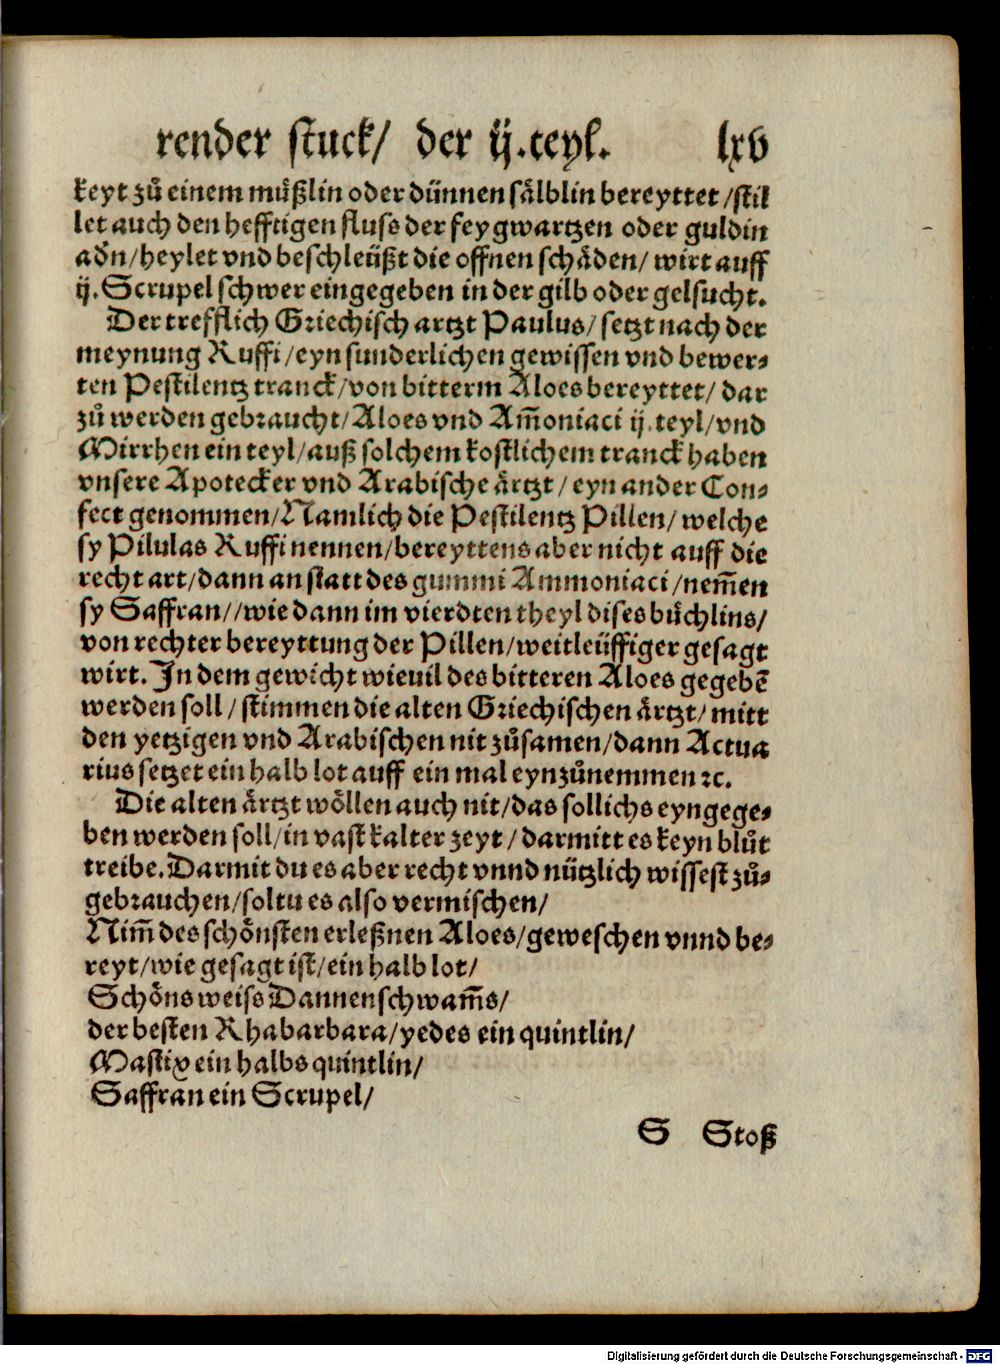 render stuck/ der ij.teyl. lxv
keyt zů einem můßlin oder dünnen sälblin bereyttet/stil
let auch den hefftigen fluss der feygwartzen oder guldin
adn/heylet vnd beschleüßt die offnen schäden/ wirt auff
ij. Scrupel schwer eingegeben in der gilb oder gelsucht.
Der trefflich Griechisch artzt Paulus/ setzt nach der
meynung Ruffi/eyn sunderlichen gewissen vnd bewer⸗
ten Pestilentz tranck/von bitterm Aloes bereyttet/ dar
zů werden gebraucht/Aloes vnd Am̅oniaci ij.teyl/vnd
Mirrhen ein teyl/auß solchem kostlichem tranck haben
vnsere Apotecker vnd Arabische ärtzt/ eyn ander Con⸗
fect genommen/Namlich die Pestilentz Pillen/ welche
sy Pilulas Ruffi nennen/bereyttens aber nicht auff die
recht art/dann an statt des gummi Ammoniaci/nem̅en
sy Saffran//wie dann im vierdten theyl dises bůchlins/
von rechter bereyttung der Pillen/weitleüffiger gesagt
wirt. In dem gewicht wieuil des bitteren Aloes gegebē
werden soll/ stimmen die alten Griechischen ärtzt/ mitt
den yetzigen vnd Arabischen nit zůsamen/dann Actua
rius setzet ein halb lot auff ein mal eynzůnemmen ꝛc.
Die alten ärtzt wöllen auch nit/das sollichs eyngege⸗
ben werden soll/in vast kalter zeyt/ darmitt es keyn blůt
treibe. Darmit du es aber recht vnnd nützlich wissest zů⸗
gebrauchen/soltu es also vermischen/
Nim̅ des schönsten erleßnen Aloes/geweschen vnnd be⸗
reyt/wie gesagt ist/ein halb lot/
Schöns weiss Dannenschwam̅s/
der besten Rhabarbara/yedes ein quintlin/
Mastix ein halbs quintlin/
Saffran ein Scrupel/
S Stoß
Digitalisierung gefördert durch die Deutsche Forschungsgemeinschaft - DFG